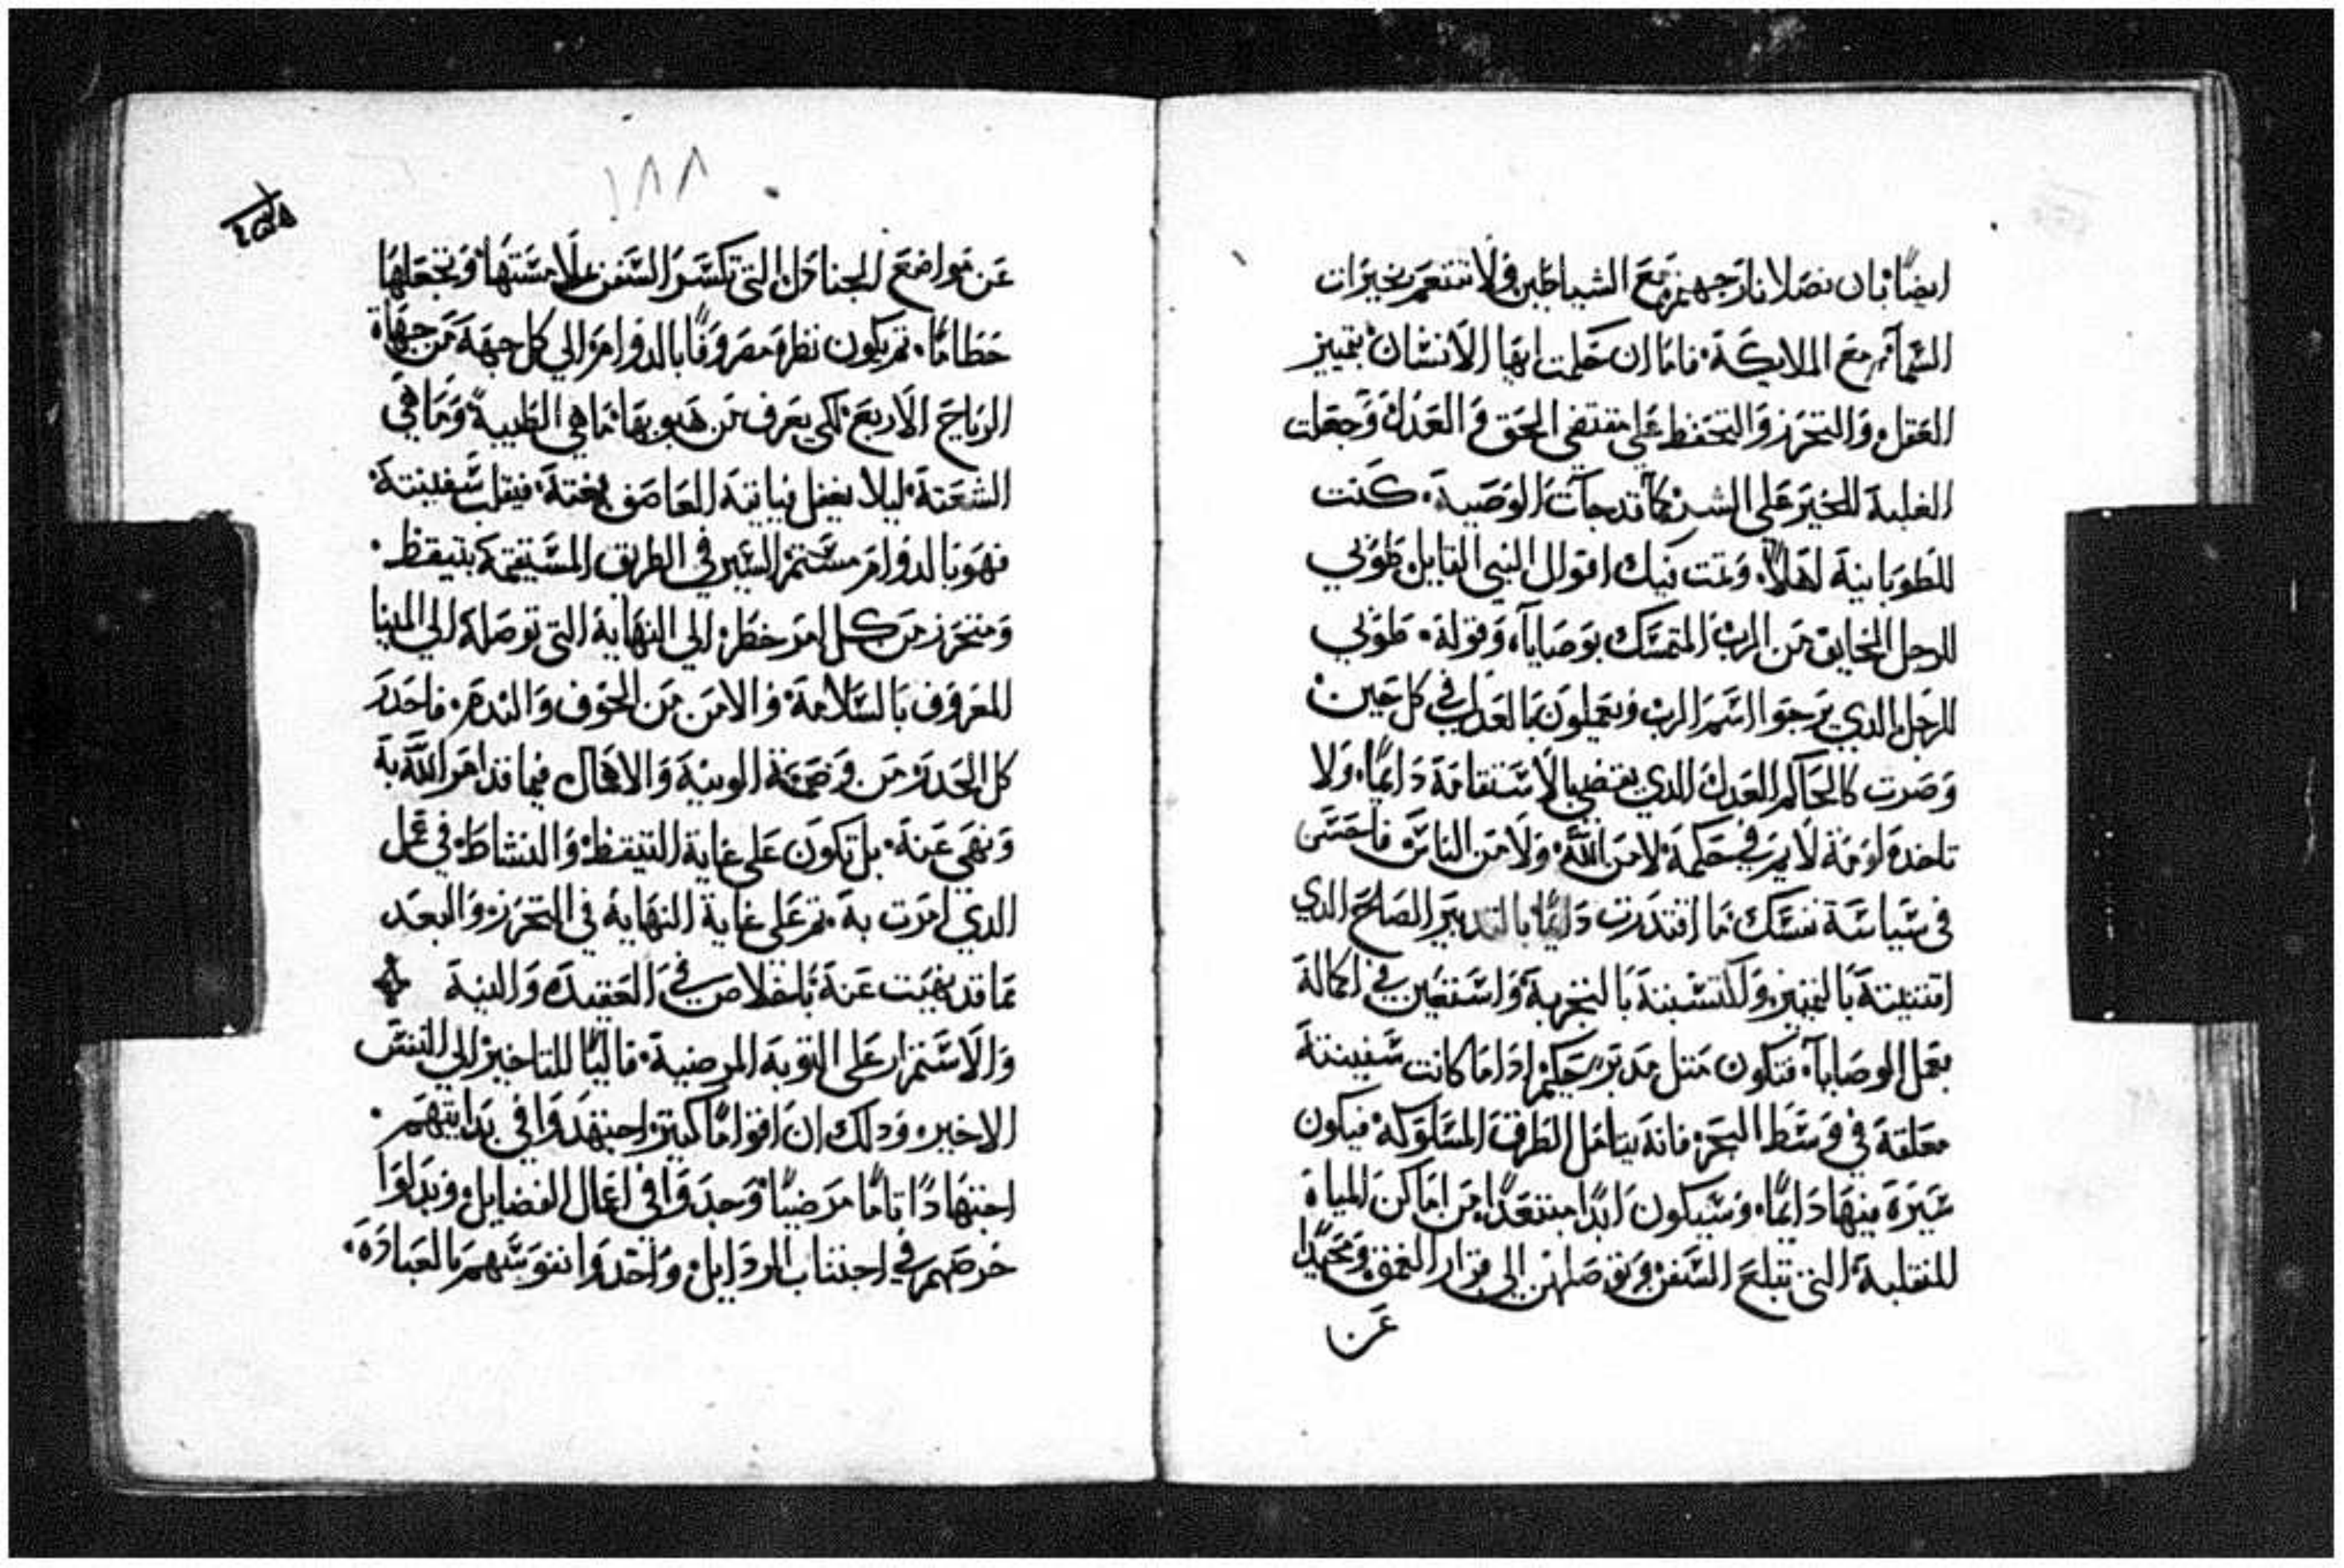 ايضًا بان تصلا نار جهنم مع الشياطين ولا تتنعم بخيرات
السمآ مع الملايكة فاما ان حكمت ايها الانسان بتمييز
العقل والتحرز والتحفظ علي مقتضي الحق والعدل وجعلت
الغلبة للخير علي الشر كما قد جآت الوصية كنت
للطوبانية اهلاً وتمت فيك اقوال النبي القايل طوبي
للرجل الخايف من الرب المتمسك بوصاياه وقوله طوبي
للرجل الذي يرجوا اسم الرب ويعملون بالعدل في كل حين
وصرت كالحاكم العدل الذي يقضي بالاستقامة دايمًا ولا
تاخده لومة لايم في حكمه لا من الله ولا من الناس فاحتسن
في سياسة نفسك ما اقتدرت دايمًا بالتدبير الصالح الدي
اقتنيته بالتمييز واكتسبته بالتجربة واستعين في اكماله
بعمل الوصايآ فتكون متل مدبر حكيم ادا ما كانت سفينته
معلقة في وسط البحر فانه يتامل الطرق المسلوكة فيكون
سيره فيها دايمًا وسيكون ابدًا مبتعدًا من اماكن المياه
المنقلبة التي تبلع السفن وتوصلهن الي قرار العمق ومحيدا
عن
١٨٨
عن مواضع الجنادل التي تكسر السفن علا مستها وتجعلها
حطامًا ثم يكون نظره مصروفًا بالدوام الي كل جهة من جهاة
الرياح الاربع لكي يعرف من هبوبها ما هي الطيبة وما هي
الشعتة ليلا يغفل فياتيه العاصف بغتة فيقلب سفينته
فهو بالدوام مستمر السير في الطريق المستقيمة بتيقظ
ومتحرز من كل امر خطر الي النهاية التي توصله الي المينا
المعروف بالسلامة والامن من الخوف والندم فاحدر
كل الحدر من وصمة الونية والاهمال فيما قد امر الله به
ونهي عنه بل تكون علي غاية التيقظ والنشاط في عمل
الدي امرت به ثم علي غاية النهاية في التحرز والبعد
مما قد نهيت عنه باخلاص في العقيده والنية
والاستمرار علي التوبة المرضية قاليًا للتاخير الي النفس
الاخير ودلك ان اقوامًا كتيرة اجتهدوا في بدايتهم
اجتهادًا تامًا مرضيًا وجدوا في اعمال الفضايل وبدلوا
حرصهم في اجتناب الردايل واخدوا نفوسهم بالعباده